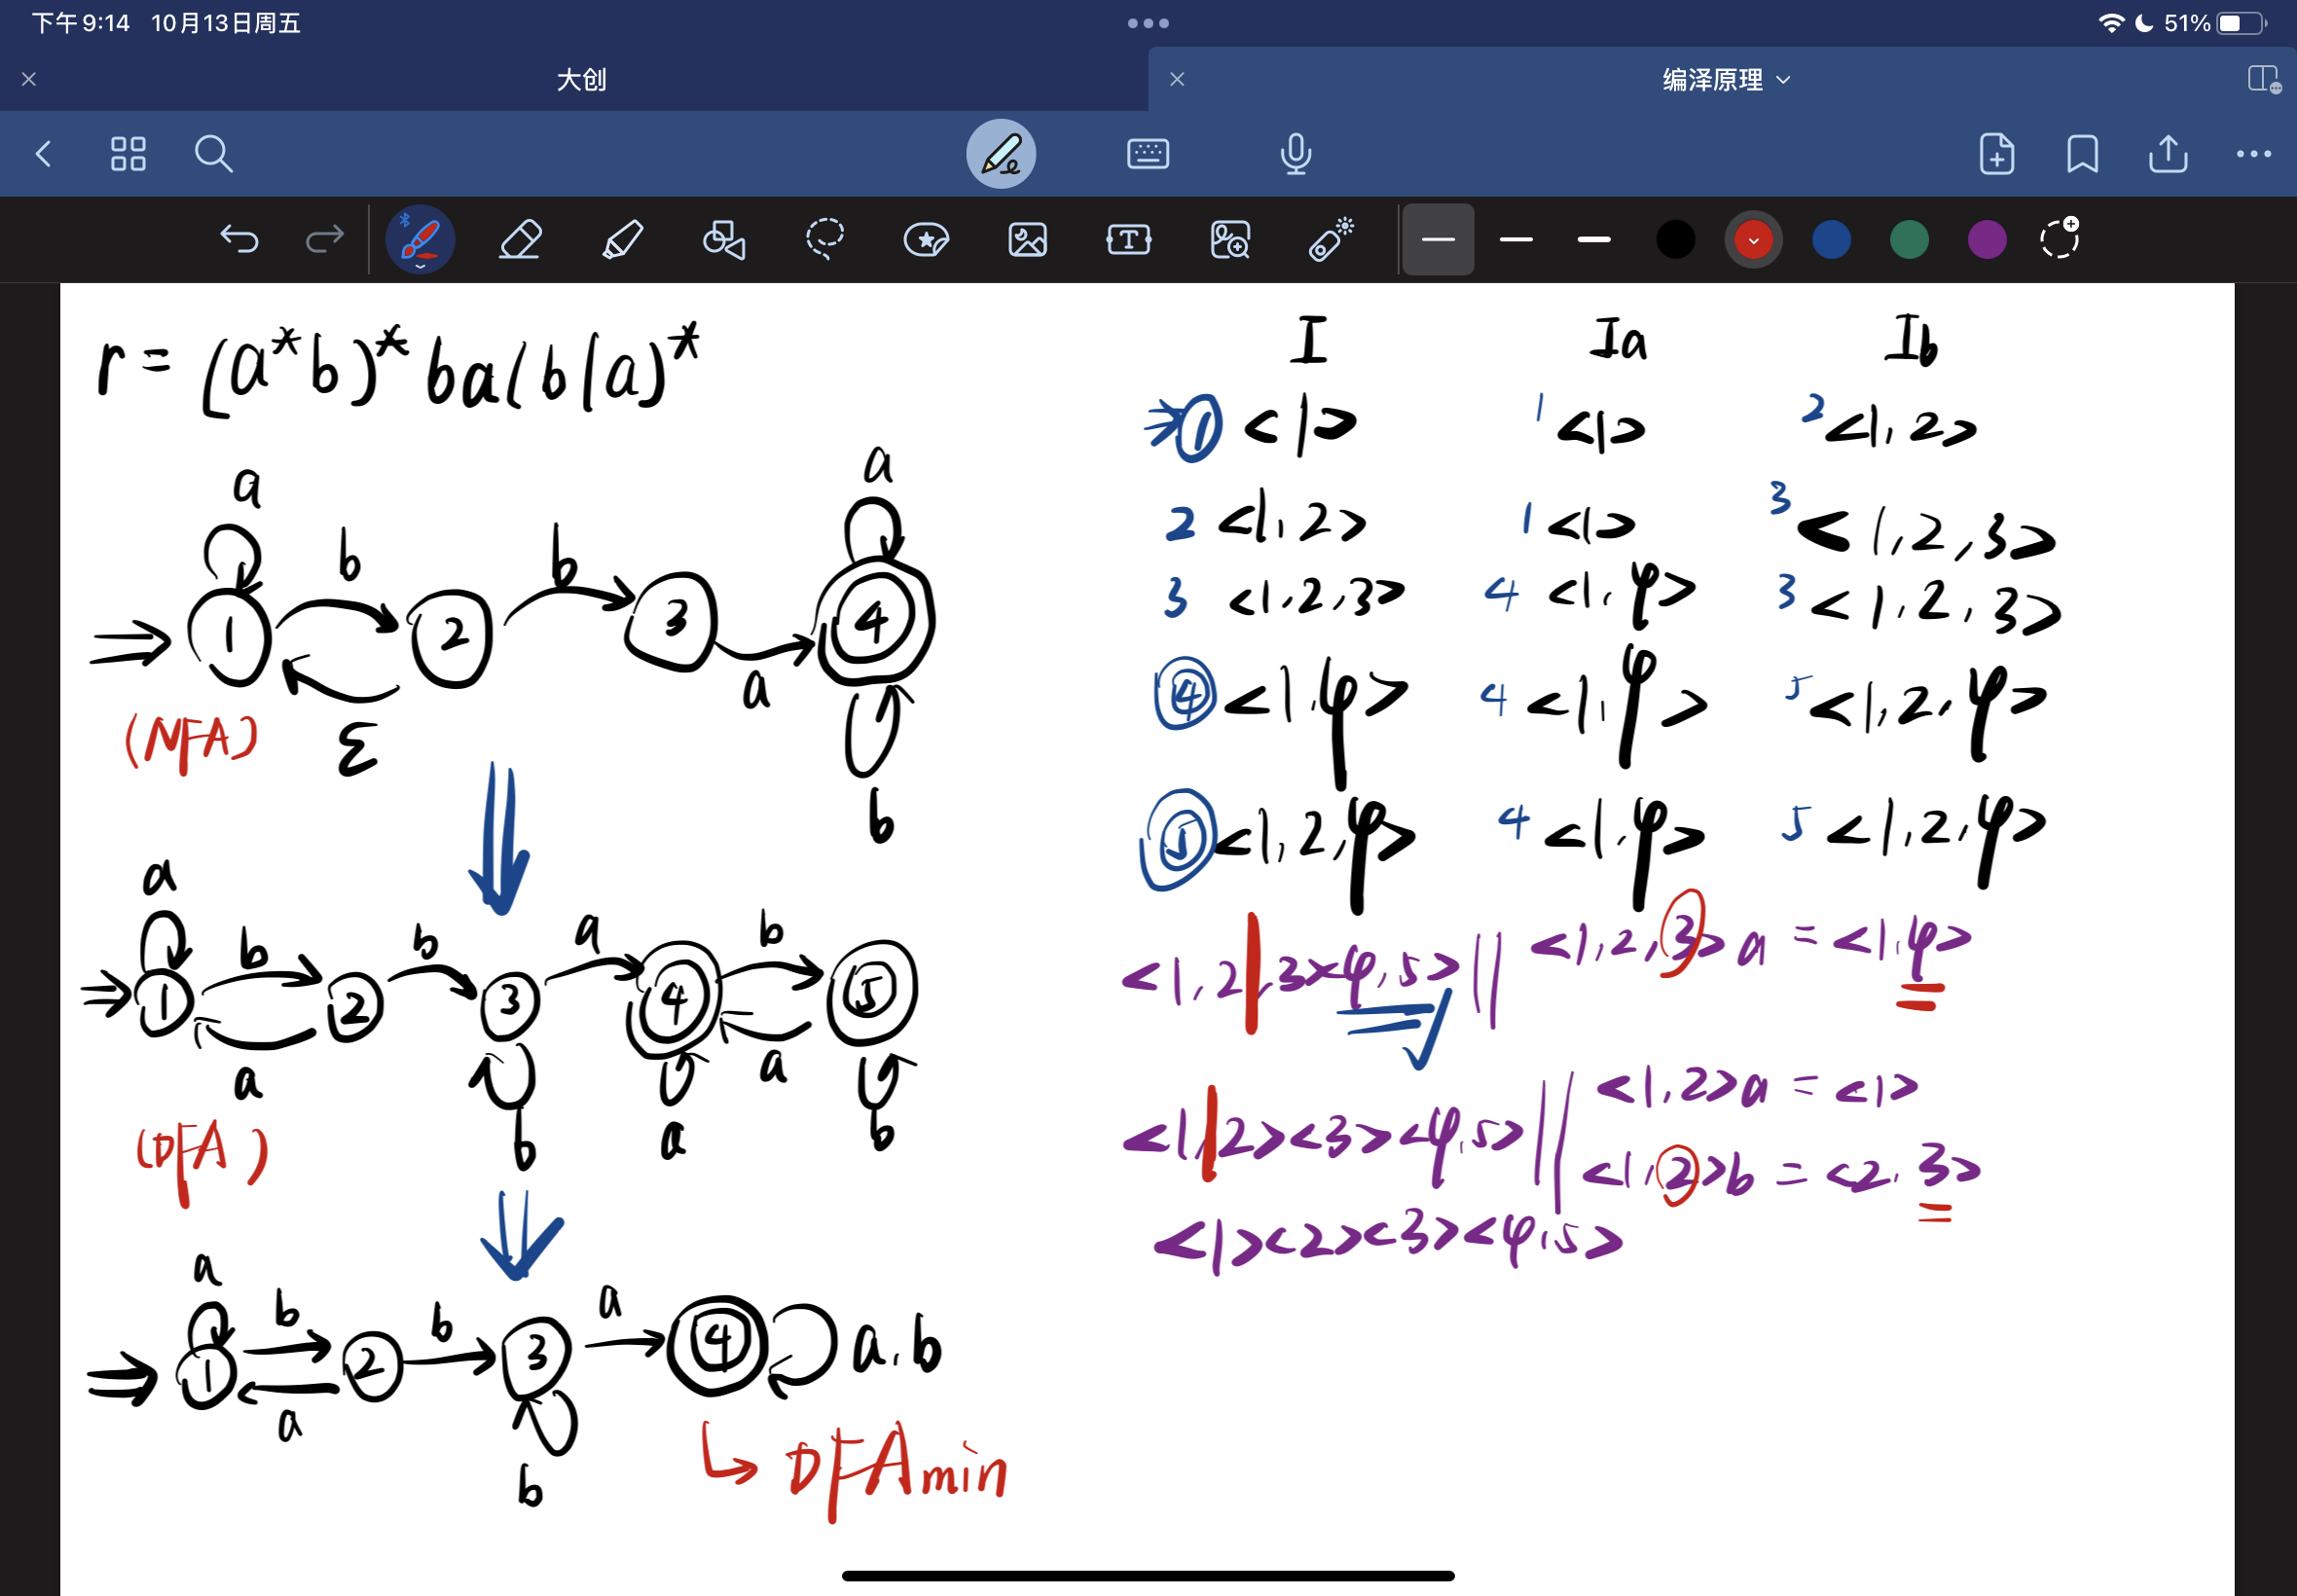 下午9:14 10月13日周五
51%
大创
编泽原理
r = (a*b)*ba(b|a)*
a
a
b
b
1
2
3
4
a
ε
(NFA)
b
a
b
b
a
b
1
2
3
4
5
a
a
b
a
b
(DFA)
a
b
b
a
1
2
3
4
a.b
a
b
DFAmin
I Ia Ib
1 <1> 1 <1> 2 <1,2>
2 <1,2> 1 <1> 3 <1,2,3>
3 <1,2,3> 4 <1,4> 3 <1,2,3>
4 <1,4> 4 <1,4> 5 <1,2,4>
5 <1,2,4> 4 <1,4> 5 <1,2,4>
<1,2,3><4,5> <1,2,3>a = <1,4>
<1,2><3><4,5> <1,2>a = <1>
<1,2>b = <2,3>
<1><2><3><4,5>